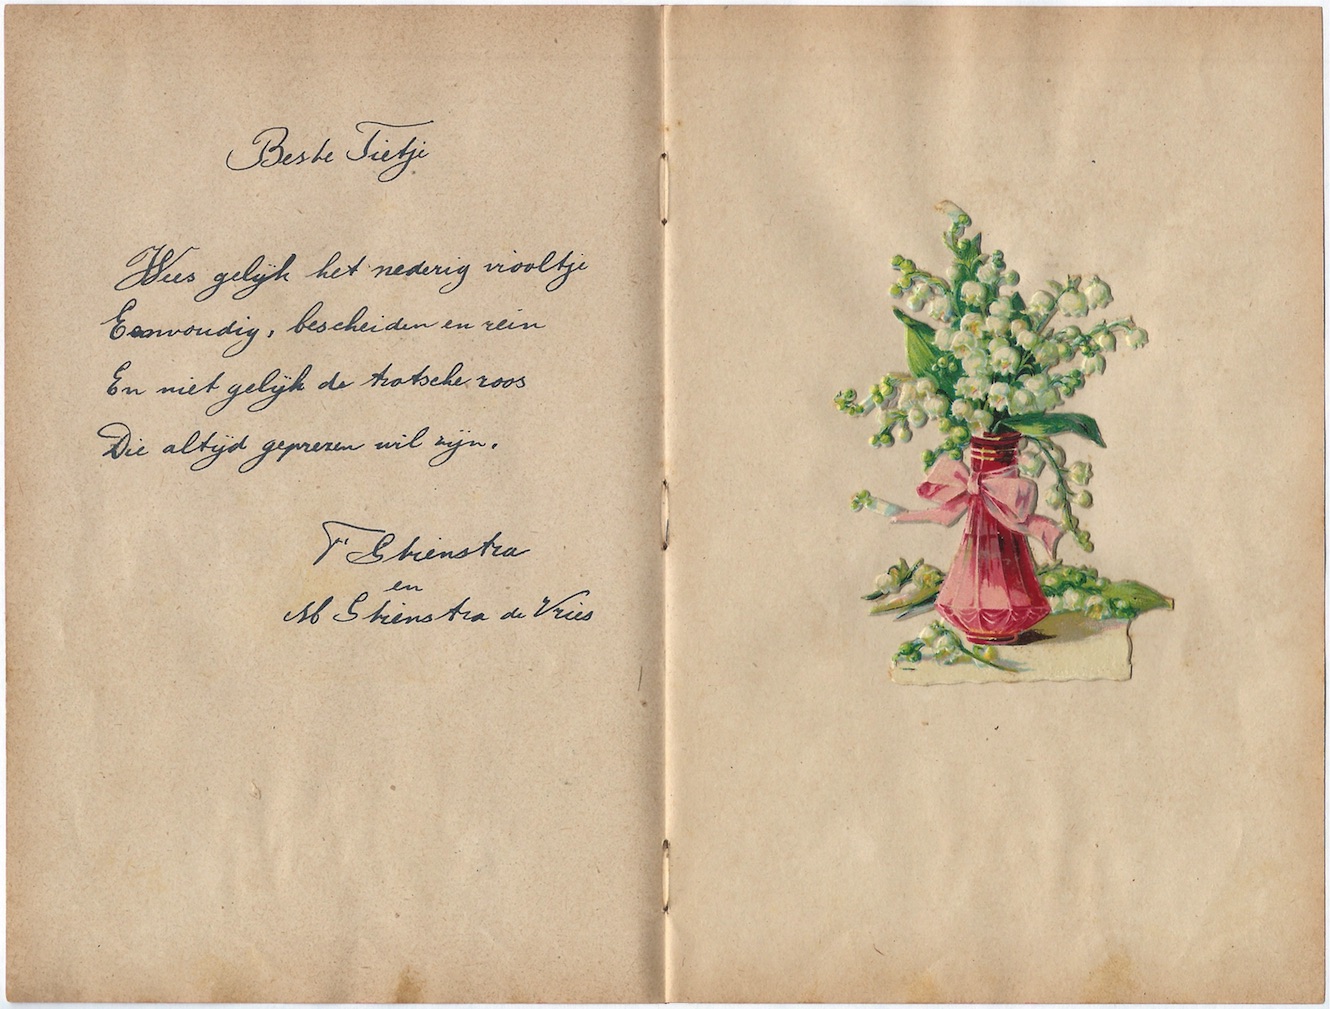 Beste Tietje
Wees gelijk het nederig viooltje
Eenvoudig, bescheiden en rein
En niet gelijk de trotsche roos
Die altijd geprezen wil zijn.
T Stienstra
en
M Stienstra de Vries